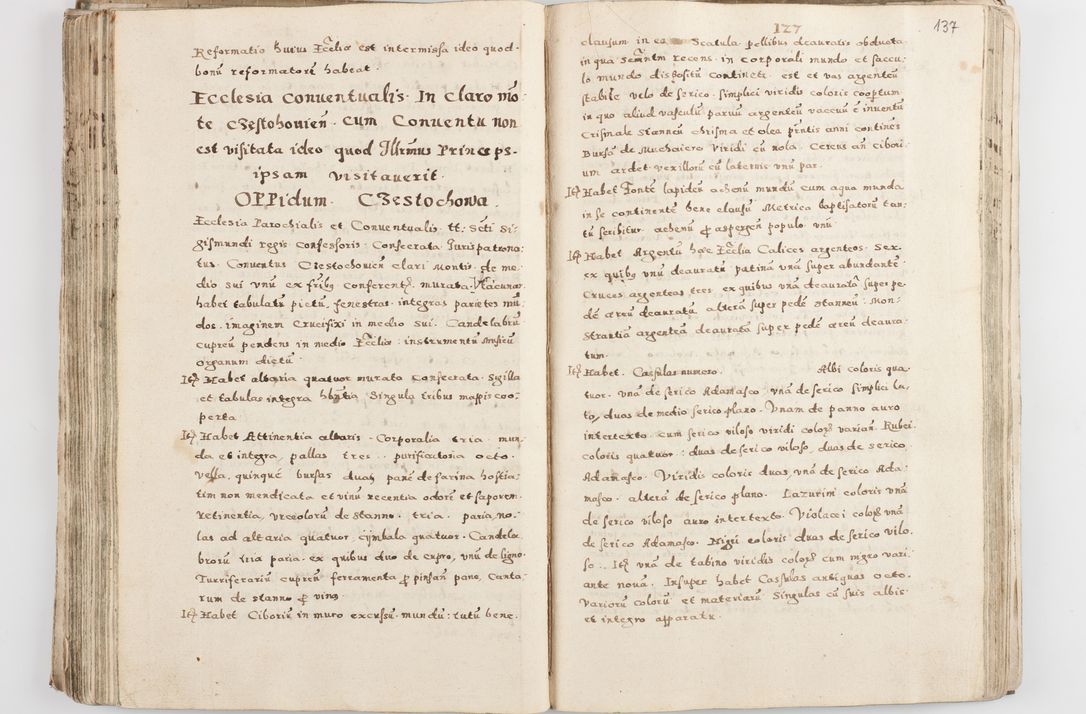 Reformatio huius Eccliæ est intermissa ideo quod
bonū reformatorē habeat.
Ecclesia Conventualis In Claro mō
te Czestohouien̄ cum Conuentu non
est visitata ideo quod Illrimus Princeps
ipsam visitauerit
OPPidum Czestochowa.
Ecclesia Parochialis et Conuentualis tt. Scti Si
gismundi regis Confessoris Consecrata Iurispatrona
tus. Conuentus Czestochouien̄ Clari Montis, de me
dio sui vnū ex fribȝ conferent. murata,
habet tabulatū pictū, fenestras integras parietes mū
dos. imaginem Crucifixi in medio sui. Candelabrū
cupreū pendens in medio Eccliæ: instrumentū musicū
organum dictū
Itȩ Habet altaria quatuor murata Consecrata. Sigilla
et tabulas integra hbn̄tia Singula tribus mappis coo
perta
Itȩ Habet Attinentia altaris. Corporalia tria. mun
da et integra, pallas tres. purificatoria octo.
vella, quinquē bursas duas panē de farina hostia
tim non mendicata et vinū recentia odorē et saporem
retinentia, vrceolorū de stanno. tria. paria, no
las ad altaria quatuor. cymbala quatuor. Candela
brorū tria paria. ex quibus duo de cupro, vnū de ligno.
Turriferariū cupreū ferramenta ꝑ pinsan̄ pane, Canta
rum de stanno ꝑ vino
Itȩ Habet Ciboriū in muro excussū. mundū: tutū bene.
127
137
clausum in ea Scatula pellibus deauratis obducta
in qua Semn̄tm recens in corporali mundo et saccu
lo mundo dispositū continetȩ. est et vas argenteū
stabile velo de serico. simplici viridis coloris coopertum
in quo aliud vasculū paruū argenteū vacuū ē inuentū
Crismale stanneū chrisma et olea pn̄tis anni continēs
Bursa de Muchaiero Viridi cū nola. Cereus an̄ cibori
um ardet. vexillorū cū laternis vnū par.
Itȩ Habet Fontē lapideū aehenū mundū cum aqua munda
in se continentē bene clausū Metrica baptisatorū tan
tū scribitur aehenū ꝑ aspergen̄ populo vnū
Itȩ Habet Argentū hæc Ecclia Calices argenteos. Sex.
ex quibȝ vnū deauratū patina vna super abundante
Cruces argenteas tres, ex quibus vna deaurata super pe
de æreū deauratū, altera super pede stanneū. Mon
strantia argentea deaurata super pede æreū deaura
tum.
Itȩ Habet. Cassulas numero. Albi coloris qua
tuor. vna de serico Adamasco. vna de serico simplici lu
to, duas de medio serico plano. Vnam de panno auro
intertexto. cum serico viloso viridi colorȩ varian̄. Rubei
coloris quatuor: duas de serico viloso, duas de serico
Adamasco. Viridis coloris duas, vna de serico Ada
masco. altera de serico plano. Lazurini coloris vna
de serico viloso auro intertexto. Violacei colorȩ vna
de serico Adamasco. Nigri coloris duas de serico vilo
so. Itȩ vna de tabino viridis colorȩ cum nigro vari
ante noua. Insuper habet Cassulas antiquas octo.
Variorū colorū et materiarū Singulas cū suis albis
et integro apparatu.